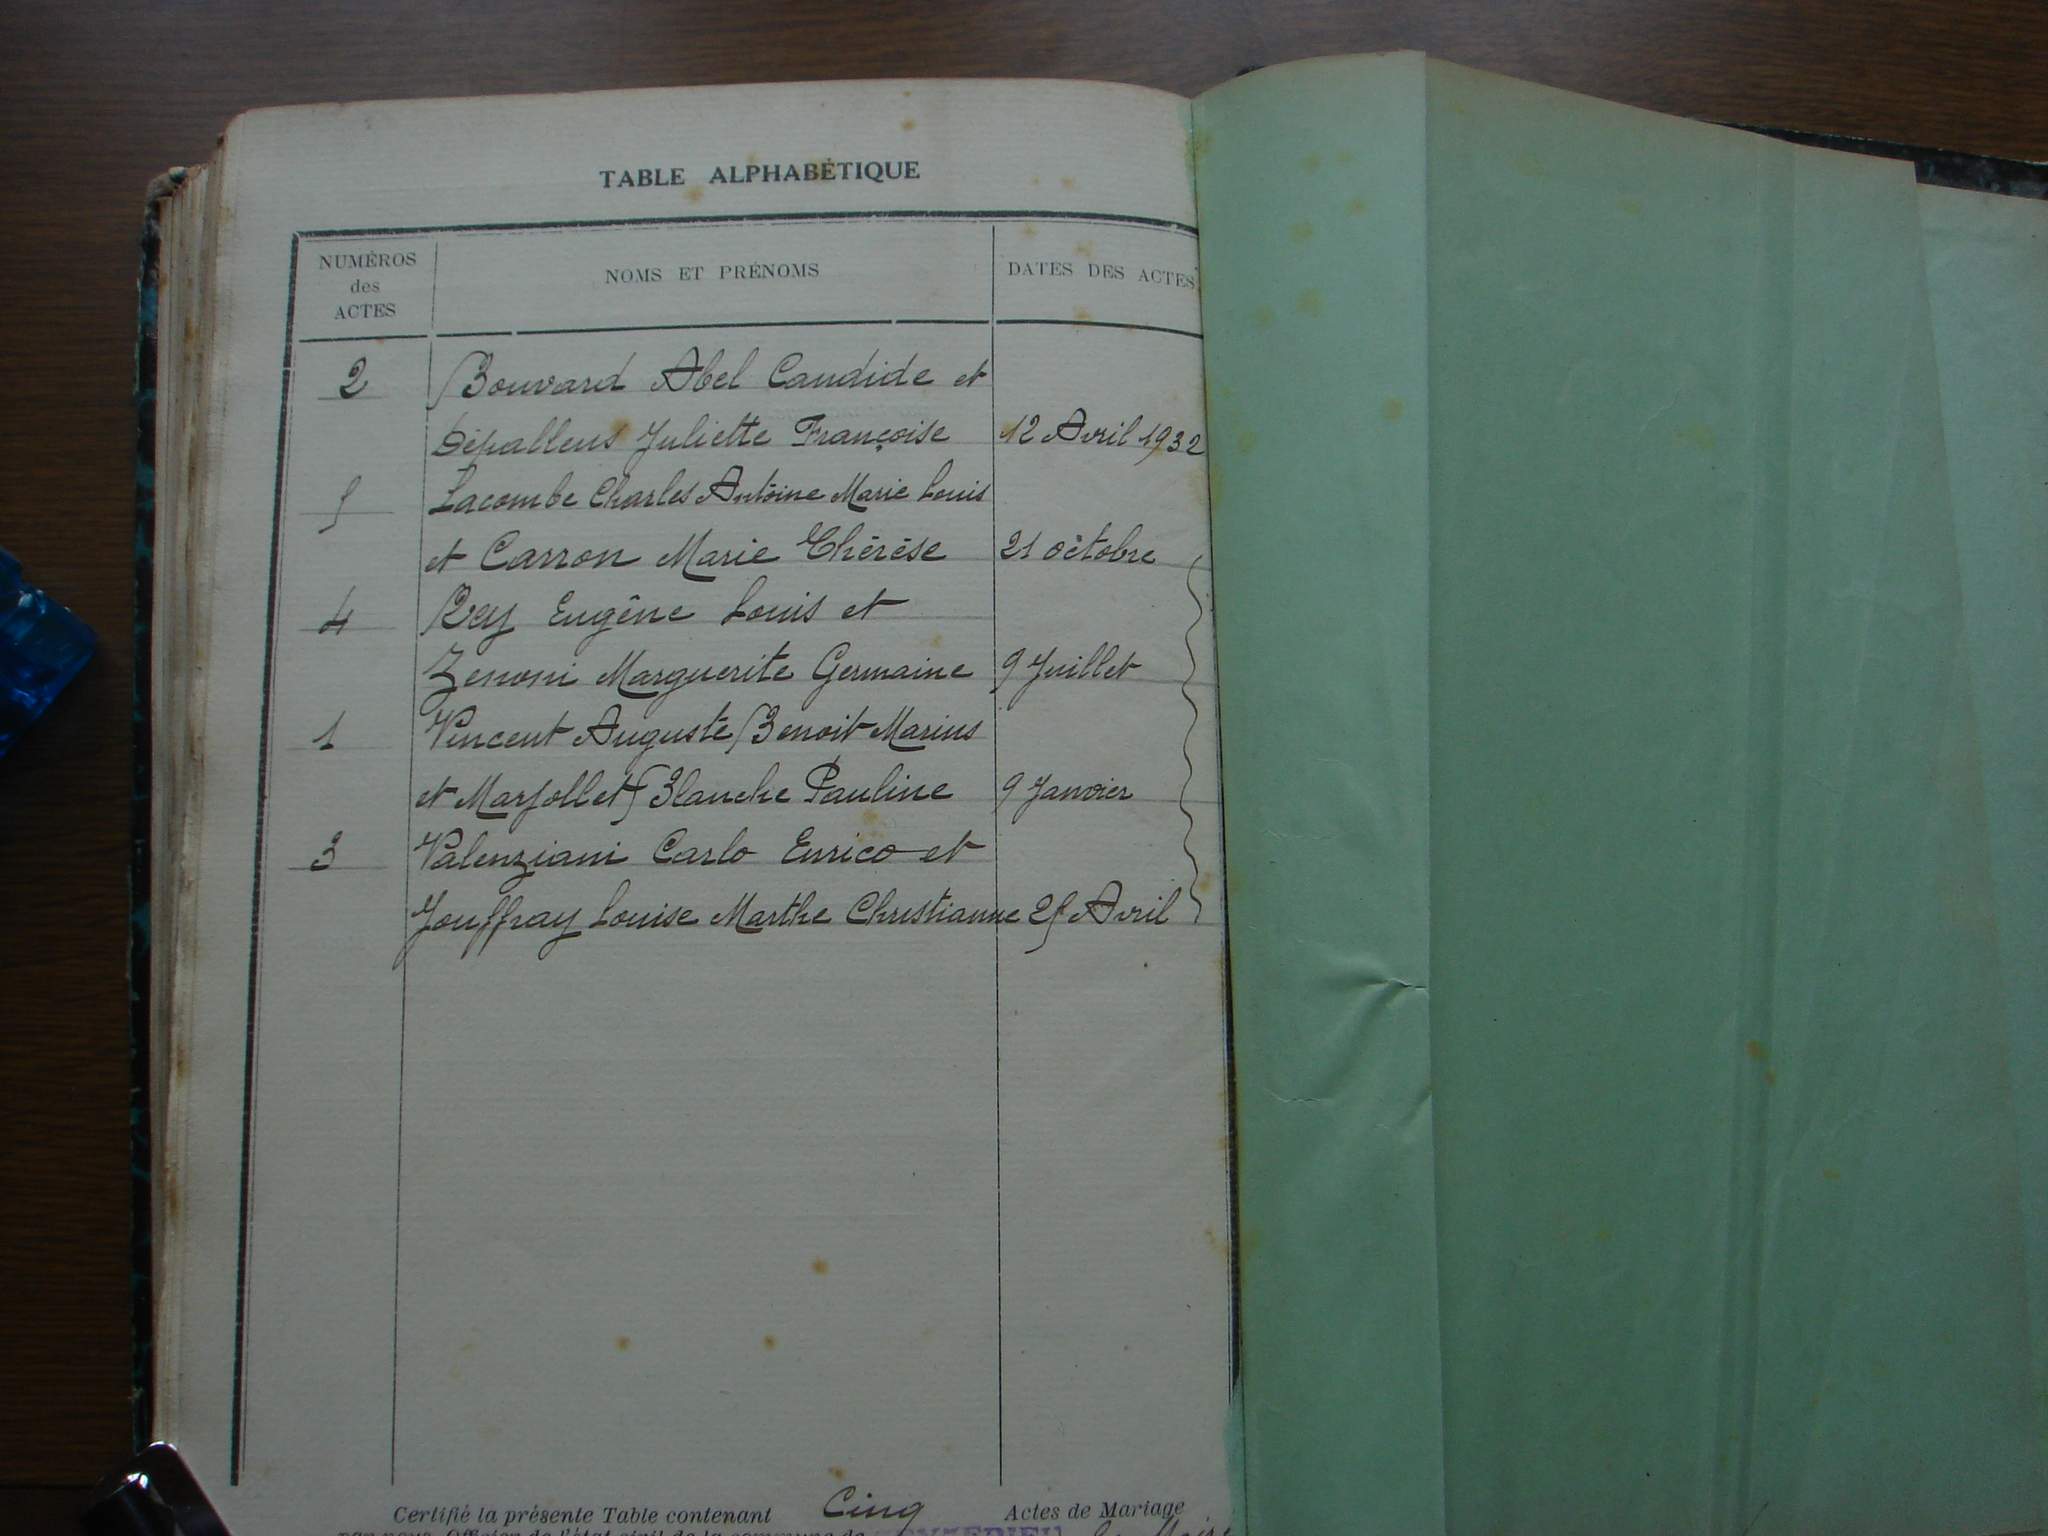 TABLE ALPHABÉTIQUE
NUMÉROS
des
ACTES
NOMS ET PRÉNOMS
DATES DES ACTES
2 Bouvard Abel Candide et
Dépallens Juliette Françoise 12 Avril 1932
5 Lacombe Charles Antoine Marie Louis
et Carron Marie Thérèse 21 octobre
4 Rey Eugène Louis et
Zenoni Marguerite Germaine 9 Juillet
1 Vincent Auguste Benoit Marius
et Marjollet Blanche Pauline 9 Janvier
3 Valenziani Carlo Enrico et
Jouffray Louise Marthe Christianne 25 Avril
Certifié la présente Table contenant Cinq Actes de Mariage
par nous, Officier de l'état civil de la commune de